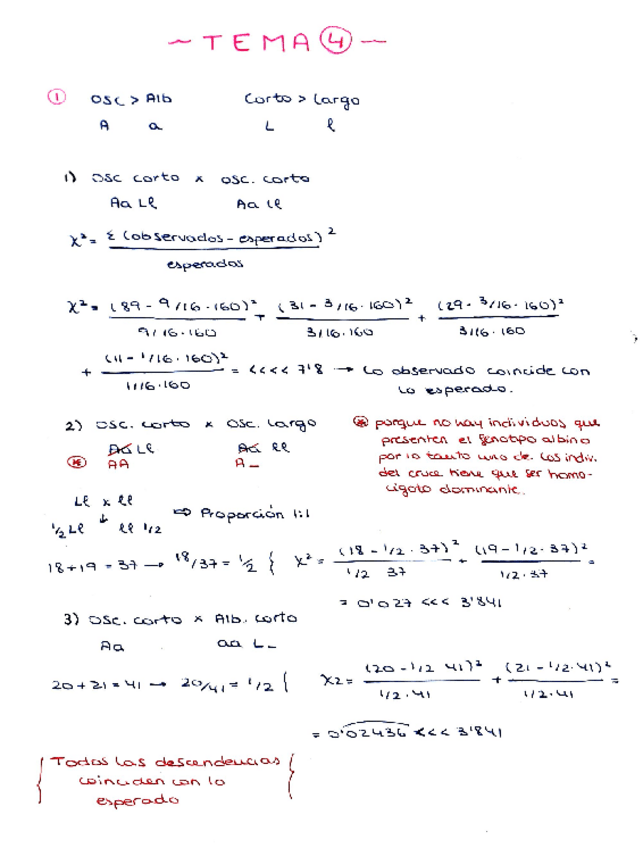 ~ TEMA 4 ~
1 OSC > Alb Corto > Largo
A a L l
1) OSC corto x osc. corto
Aa Ll Aa Ll
χ² = Σ (observados - esperados)²
esperados
χ² = (89 - 9/16 · 160)² + (31 - 3/16 · 160)² + (29 - 3/16 · 160)²
9/16 · 160 3/16 · 160 3/16 · 160
+ (11 - 1/16 · 160)² = <<<< 7'8 → Lo observado coincide con
1/16 · 160 lo esperado.
2) OSC. corto x Osc. largo
Aa Ll Aa ll
* AA A_
* porque no hay individuos que
presenten el fenotipo albino
por lo tanto uno de los indiv.
del cruce tiene que ser homo-
cigoto dominante.
Ll x ll
↓ ⇒ Proporción 1:1
1/2 Ll ll 1/2
18 + 19 = 37 → 18/37 = 1/2 { χ² = (18 - 1/2 · 37)² + (19 - 1/2 · 37)² =
1/2 37 1/2 · 37
= 0'027 <<< 3'841
3) Osc. corto x Alb. corto
Aa aa L_
20 + 21 = 41 → 20/41 = 1/2 { χ2 = (20 - 1/2 41)² + (21 - 1/2 · 41)² =
1/2 · 41 1/2 · 41
= 0'02436 <<< 3'841
{ Todas las descendencias
coinciden con lo
esperado {